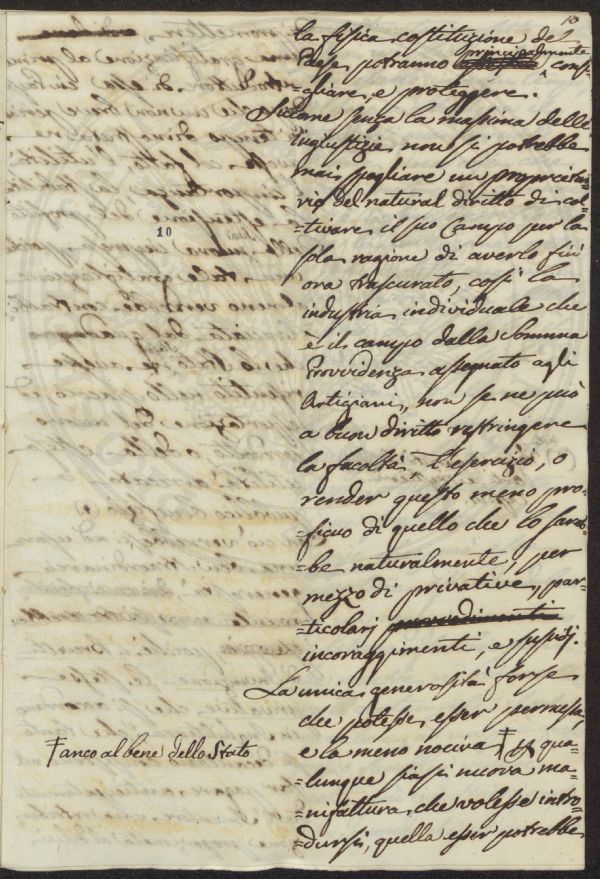 10
la fisica costituzione del
principalmente
Paese potranno consi
gliare, e proteggere.
Siccome senza la massima delle
ingiustizie non si potrebbe
mai spogliare un proprieta
=rio del natural diritto di col
=tivare il suo Campo per la
sola ragione di averlo fin'
ora trascurato, così la
industria individuale che
è il campo dalla Somma
Provvidenza assegnato agli
Artigiani, non se ne può
a buon diritto restringere
la facoltà l'esercizio, o
render questo meno pro=
=ficuo di quello che lo sareb=
=be naturalmente, per
mezzo di privative, par=
=ticolari provvedimenti
incoraggimenti, e sussidj.
La unica generosità forse
che potesse esser permessa,
e la meno nociva ‡ qua=
=lunque siasi nuova ma=
=nifattura, che volesse intro=
=dursi, quella esser potrebbe
‡ anco al bene dello Stato
10